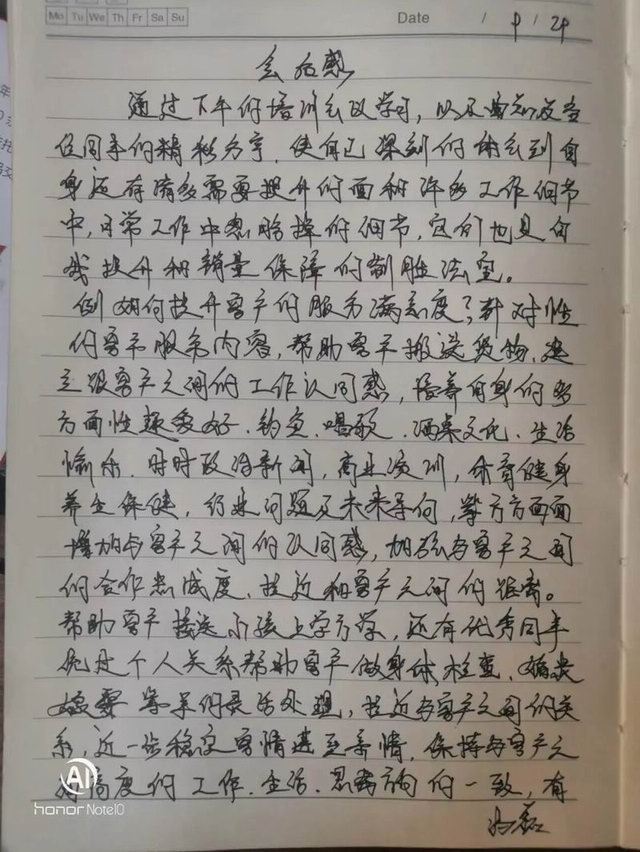 Mo Tu We Th Fr Sa Su
Date / 9 / 24
会后感
通过下午的培训会议学习，以及
同事的精彩分享，使自己深刻的体会到自
身还存诸多需要提升的面和许多工作细节
中，日常工作中忽略掉的细节，它们也是自
我提升和销量保障的制胜法宝。
例如何提升客户的服务满意度？针对性
的客户服务内容，帮助客户搬送货物，建
立跟客户之间的工作认同感，培养自身的多
方面性趣爱好、钓鱼、唱歌、酒桌文化、生活
时时政治新闻，商业培训，体育健身
养生保健，行业问题及未来导向，等方方面面
增加与客户之间的认同感，加强与客户之间
的合作忠诚度，拉近和客户之间的距离。
帮助客户接送小孩上学放学，还有优秀同事
动过个人关系帮助客户做身体检查、
等等的灵活处理，拉近与客户之间的关
系，近一步稳定客情甚至亲情，保持与客户之
间高度的工作、生活、思路方向的一致，有
冯磊
AI
honor Note10